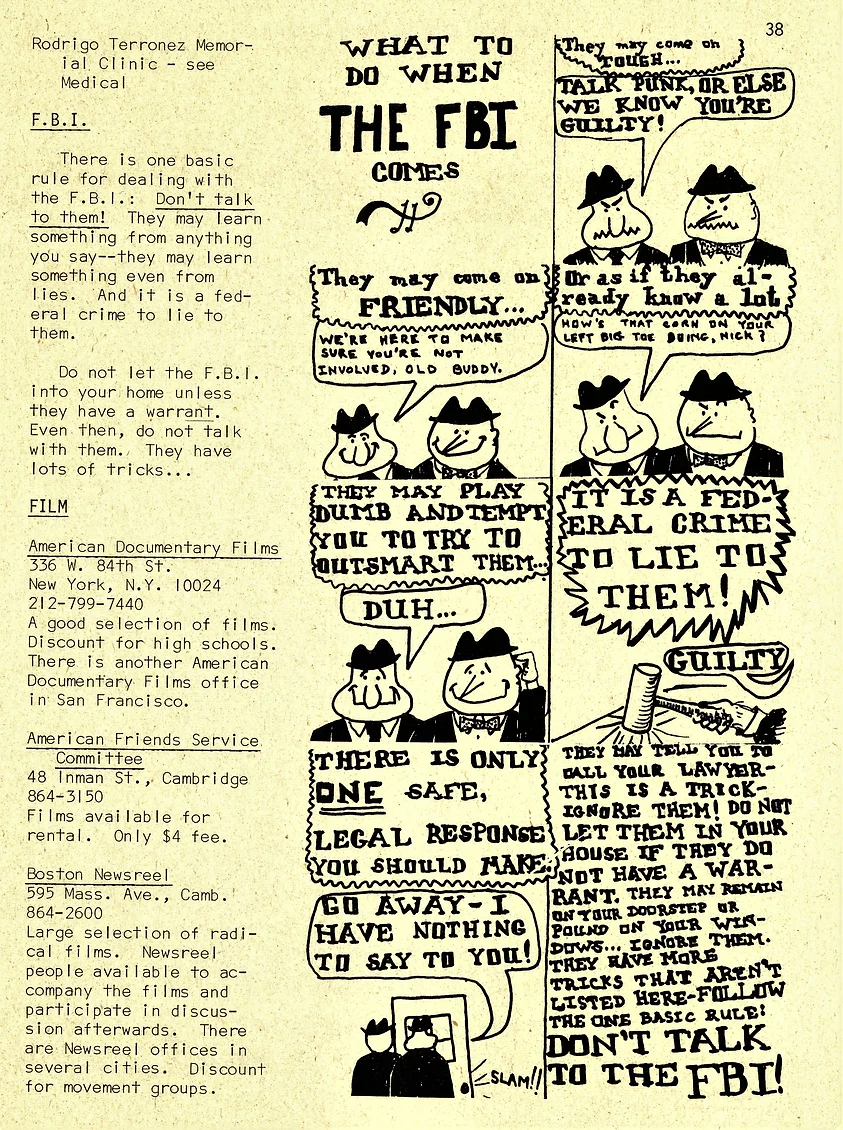 38
Rodrigo Terronez Memor-
ial Clinic - see
Medical
F.B.I.
There is one basic
rule for dealing with
the F.B.I.: Don't talk
to them! They may learn
something from anything
you say--they may learn
something even from
lies. And it is a fed-
eral crime to lie to
them.
Do not let the F.B.I.
into your home unless
they have a warrant.
Even then, do not talk
with them. They have
lots of tricks...
FILM
American Documentary Films
336 W. 84th St.
New York, N.Y. 10024
212-799-7440
A good selection of films.
Discount for high schools.
There is another American
Documentary Films office
in San Francisco.
American Friends Service
Committee
48 Inman St., Cambridge
864-3150
Films available for
rental. Only $4 fee.
Boston Newsreel
595 Mass. Ave., Camb.
864-2600
Large selection of radi-
cal films. Newsreel
people available to ac-
company the films and
participate in discus-
sion afterwards. There
are Newsreel offices in
several cities. Discount
for movement groups.
WHAT TO
DO WHEN
THE FBI
COMES
They may come on
FRIENDLY...
WE'RE HERE TO MAKE
SURE YOU'RE NOT
INVOLVED, OLD BUDDY.
THEY MAY PLAY
DUMB AND TEMPT
YOU TO TRY TO
OUTSMART THEM...
DUH...
THERE IS ONLY
ONE SAFE,
LEGAL RESPONSE
YOU SHOULD MAKE:
GO AWAY-I
HAVE NOTHING
TO SAY TO YOU!
SLAM!!
They may come on
TOUGH...
TALK PUNK, OR ELSE
WE KNOW YOU'RE
GUILTY!
Or as if they al-
ready know a lot
HOW'S THAT CORN ON YOUR
LEFT BIG TOE DOING, NICK?
IT IS A FED-
ERAL CRIME
TO LIE TO
THEM!
GUILTY
THEY MAY TELL YOU TO
CALL YOUR LAWYER-
THIS IS A TRICK-
IGNORE THEM! DO NOT
LET THEM IN YOUR
HOUSE IF THEY DO
NOT HAVE A WAR-
RANT. THEY MAY REMAIN
ON YOUR DOORSTEP OR
POUND ON YOUR WIN-
DOWS... IGNORE THEM.
THEY HAVE MORE
TRICKS THAT AREN'T
LISTED HERE-FOLLOW
THE ONE BASIC RULE:
DON'T TALK
TO THE FBI!